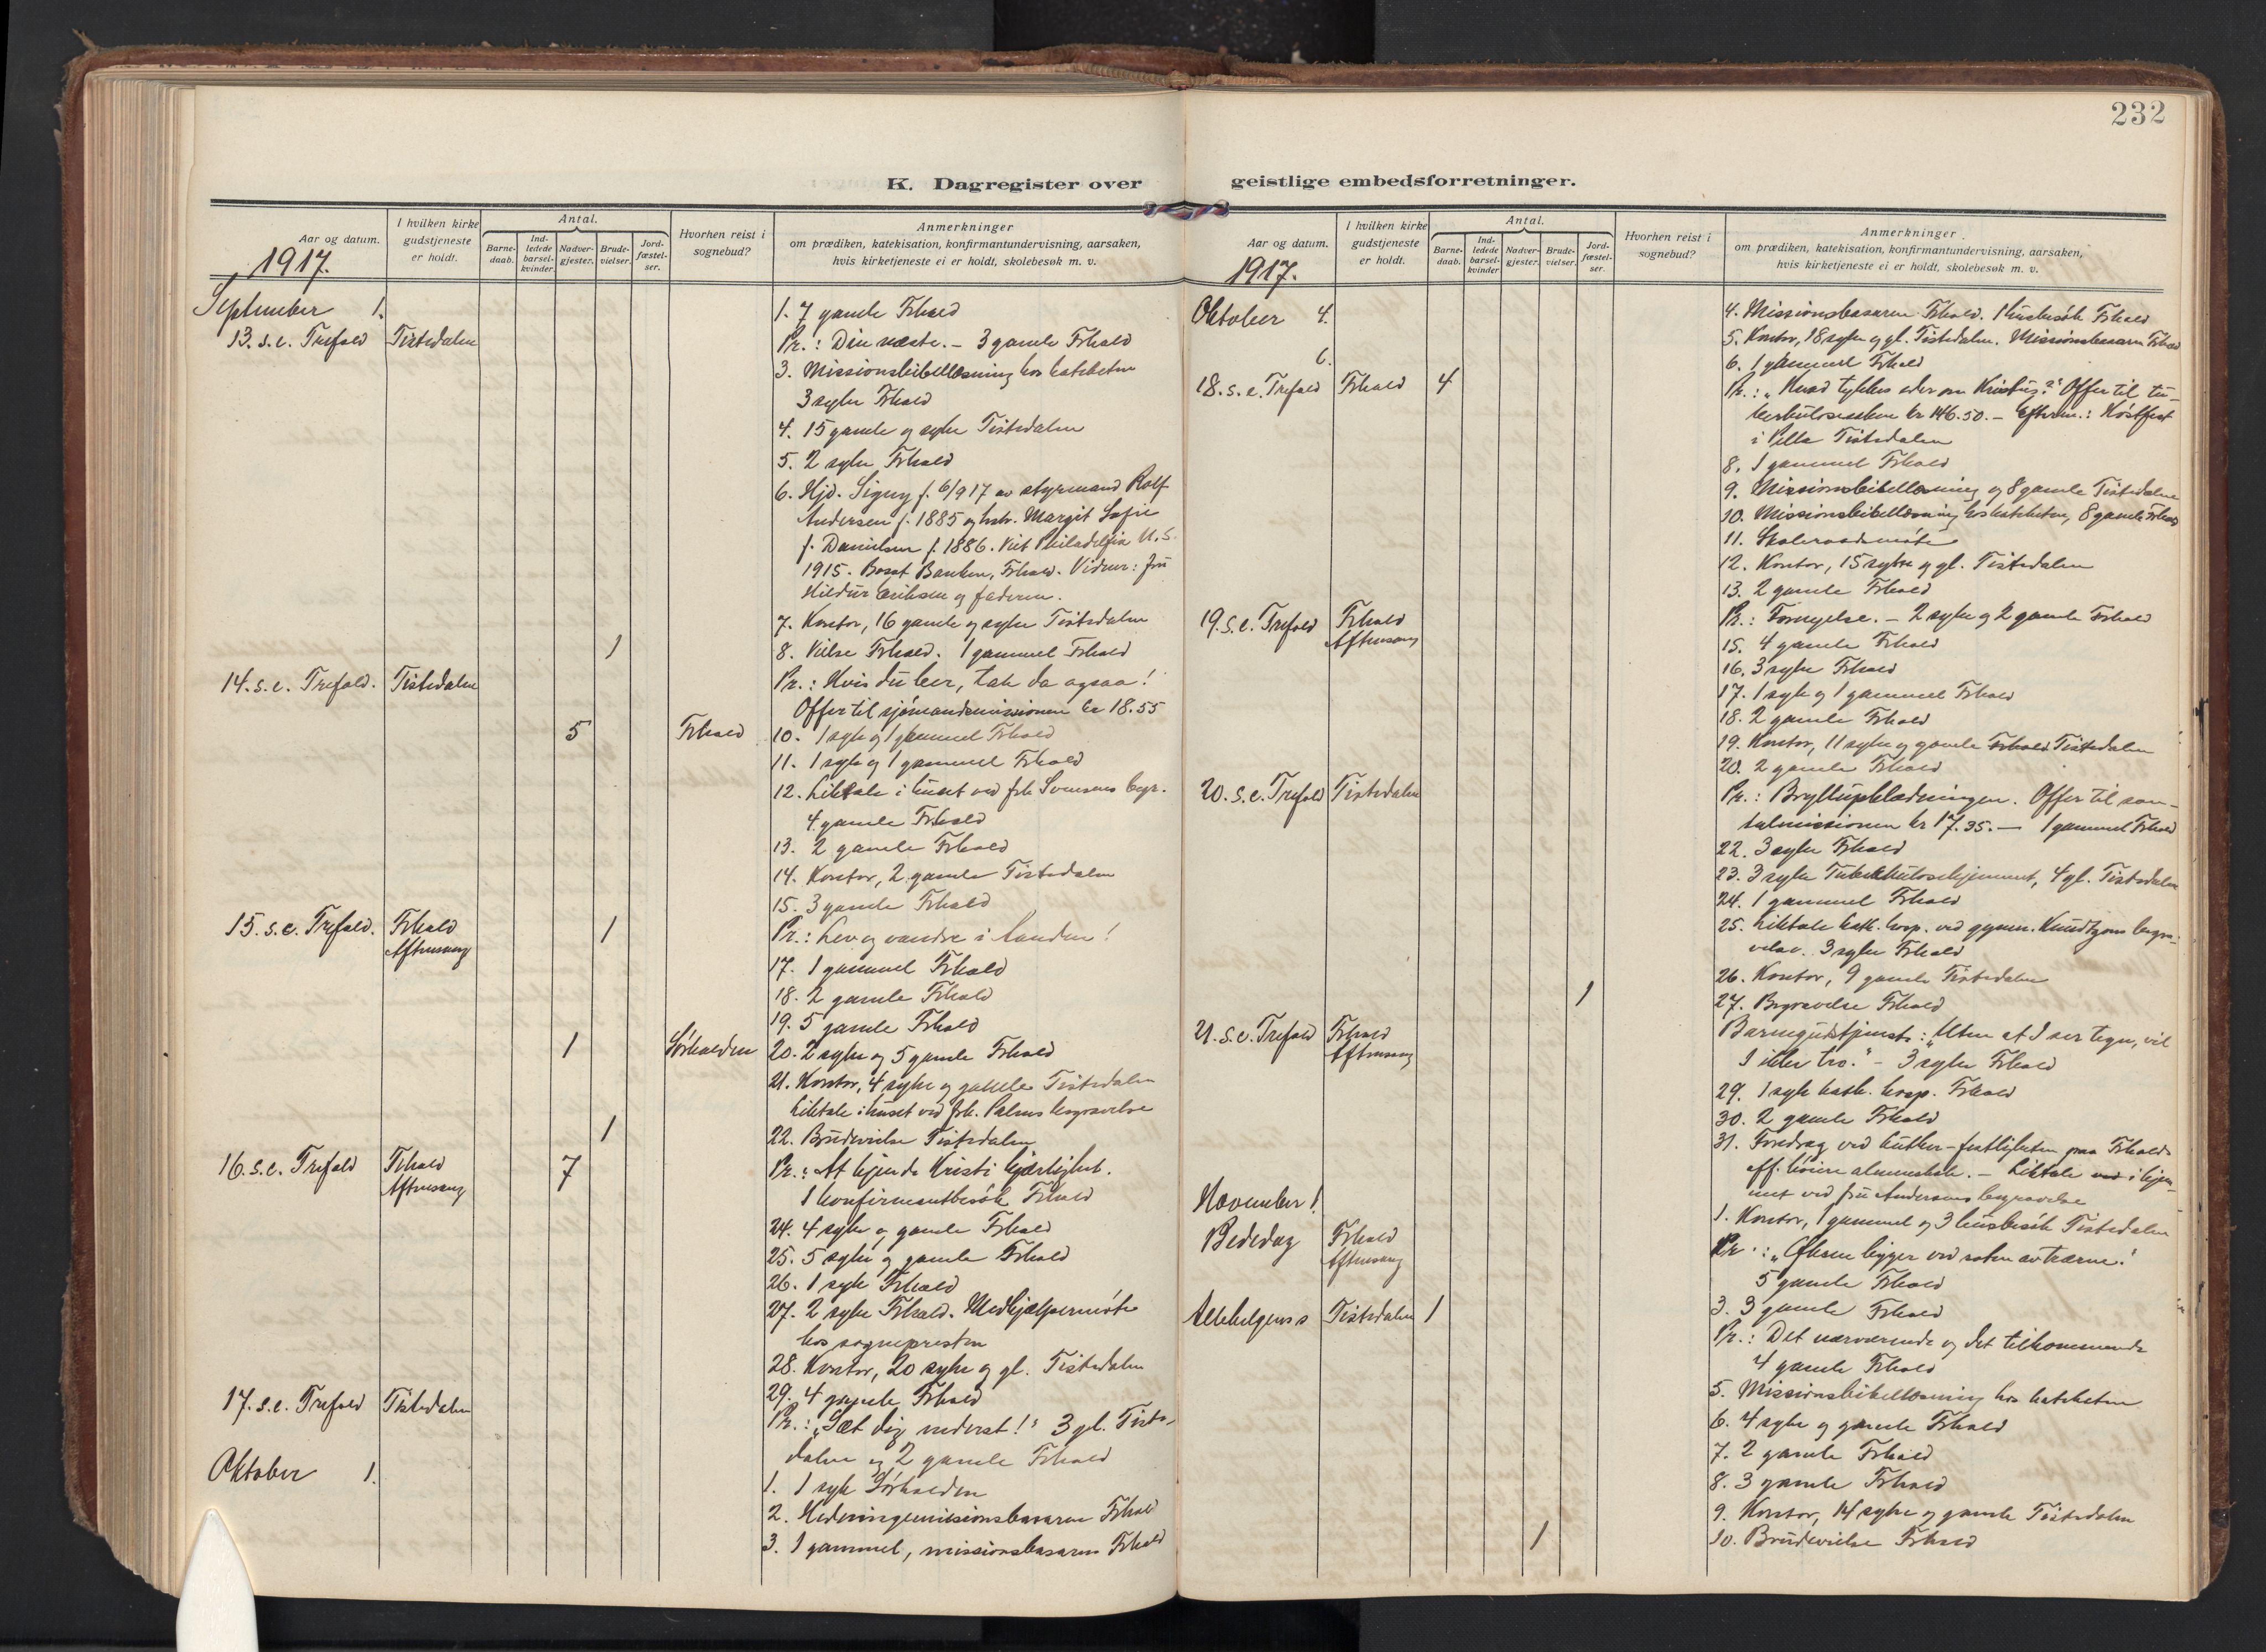 232
K. Dagregister over geistlige embedsforretninger.
Aar og datum.
1917.
I hvilken kirke gudstjeneste er holdt.
Antal.
Barne-daab.
Ind-ledede barsel-kvinder.
Nadver-gjester.
Brude-vielser.
Jord-fæstel-ser.
Hvorhen reist i sognebud?
Anmerkninger
om prædiken, katekisation, konfirmantundervisning, aarsaken,
hvis kirketjeneste ei er holdt, skolebesøk m. v.
September 1. 1. 7 gamle Frhald
13. s. e. Trefold Tistedalen Pr.: Din næste. – 3 gamle Frhald
3. Missionsbibellæsning hos kateketen
3 syke Frhald
4. 15 gamle og syke Tistedalen
5. 2 syke Frhald
6. Hjd. Signy f. 6/9 17 av styrmand Rolf
Andersen f. 1885 og hstr. Margit Sofie
f. Danielsen f. 1886. Viet Philadelfia U.S.
1915. Bosat Banken, Frhald. Vidner: fru
Hildur Eriksen og faderen.
7. Kontor, 16 gamle og syke Tistedalen
1 8. Vielse Frhald. 1 gammel Frhald
14. s. e. Trefold. Tistedalen Pr.: Hvis du ber, tak da ogsaa!
Offer til sjømandsmissionen kr 18.55
5 Frhald 10. 1 syk og 1 gammel Frhald
11. 1 syk og 1 gammel Frhald
12. Liktale i huset ved frk Svensens begr.
4 gamle Frhald
13. 2 gamle Frhald
14. Kontor, 2 gamle Tistedalen
15. 3 gamle Frhald
15. s. e. Trefold. Frhald Aftensang 1 Pr.: Lev og vandre i Aanden!
17. 1 gammel Frhald
18. 2 gamle Frhald
19. 5 gamle Frhald
1 Sørhalden 20. 2 syke og 5 gamle Frhald
21. Kontor, 4 syke og gamle Tistedalen
Liktale i huset ved frk. Palms begravelse
1 22. Brudevielse Tistedalen
16. s. e. Trefold Frhald Aftensang 7 Pr.: At kjende Kristi kjærlighet.
1 konfirmantbesøk Frhald
24. 4 syke og gamle Frhald
25. 5 syke og gamle Frhald
26. 1 syk Frhald
27. 2 syke Frhald. Medhjælpermøte
hos sognepresten
28. Kontor, 20 syke og gl. Tistedalen
29. 4 gamle Frhald
17. s. e. Trefold Tistedalen Pr.: „Sæt dig nederst!" 3 gl. Tiste-
dalen og 2 gamle Frhald
Oktober 1. 1. 1 syk Sørhalden
2. Hedningemissionsbasaren Frhald
3. 1 gammel, missionsbasaren Frhald
Aar og datum.
1917.
I hvilken kirke gudstjeneste er holdt.
Antal.
Barne-daab.
Ind-ledede barsel-kvinder
Nadver-gjester.
Brude-vielser.
Jord-fæstel-ser.
Hvorhen reist i sognebud?
Anmerkninger
om prædiken, katekisation, konfirmantundervisning, aarsaken,
hvis kirketjeneste ei er holdt, skolebesøk m. v.
Oktober 4. 4. Missionsbasaren Frhald. 1 husbesøk Frhald
5. Kontor, 18 syke og gl. Tistedalen. Missionsbasaren Frhald
6. 6. 1 gammel Frhald
18. s. e. Trefold Frhald 4 Pr.: „Hvad tykkes eder om Kristus?" Offer til tu-
berkulosesaken kr 146.50. – Efterm.: Høstfest
i Tistedalen
8. 1 gammel Frhald
9. Missionsbibellæsning og 8 gamle Tistedalen
10. Missionsbibellæsning hos kateketen, 8 gamle Frhald
11. Skoleraadsmøte
12. Kontor, 15 syke og gl. Tistedalen
13. 2 gamle Frhald
19. s. e. Trefold Frhald Aftensang Pr.: Fornyelse. – 2 syke og 2 gamle Frhald
15. 4 gamle Frhald
16. 3 syke Frhald
17. 1 syk og 1 gammel Frhald
18. 2 gamle Frhald
19. Kontor, 11 syke og gamle Frhald Tistedalen
20. 2 gamle Frhald
20. s. e. Trefold Tistedalen Pr.: Bryllupsklædningen. Offer til san-
talmissionen kr 17.35. – 1 gammel Frhald
22. 3 syke Frhald
23. 3 syke Tuberkulosehjemmet, 4 gl. Tistedalen
24. 1 gammel Frhald
25. Liktale kath. hosp. ved gymn. Knudtzons begra-
velse. 3 syke Frhald
26. Kontor, 9 gamle Tistedalen
1 27. Begravelse Frhald
21. s. e. Trefold Frhald Aftensang Barnegudstjeneste: „Uten at I ser tegn, vil
I ikke tro." – 3 syke Frhald
29. 1 syk kath. hosp. Frhald
30. 2 gamle Frhald
31. Foredrag ved Luther-festligheten paa Frhalds
off. høiere almenskole. – Liktale ved i hjem-
met ved fru Andersens begravelse
November 1. 1. Kontor, 1 gammel og 3 husbesøk Tistedalen
Bededag Frhald Aftensang Pr.: „Øksen ligger ved roten av trærne!
5 gamle Frhald
3. 3 gamle Frhald
Allehelgens s Tistedalen 1 Pr.: Det nærværende og det tilkommende
4 gamle Frhald
5. Missionsbibellæsning hos kateketen
6. 4 syke og gamle Frhald
7. 2 gamle Frhald
8. 3 gamle Frhald
9. Kontor, 14 syke og gamle Tistedalen
1 10. Brudevielse Frhald